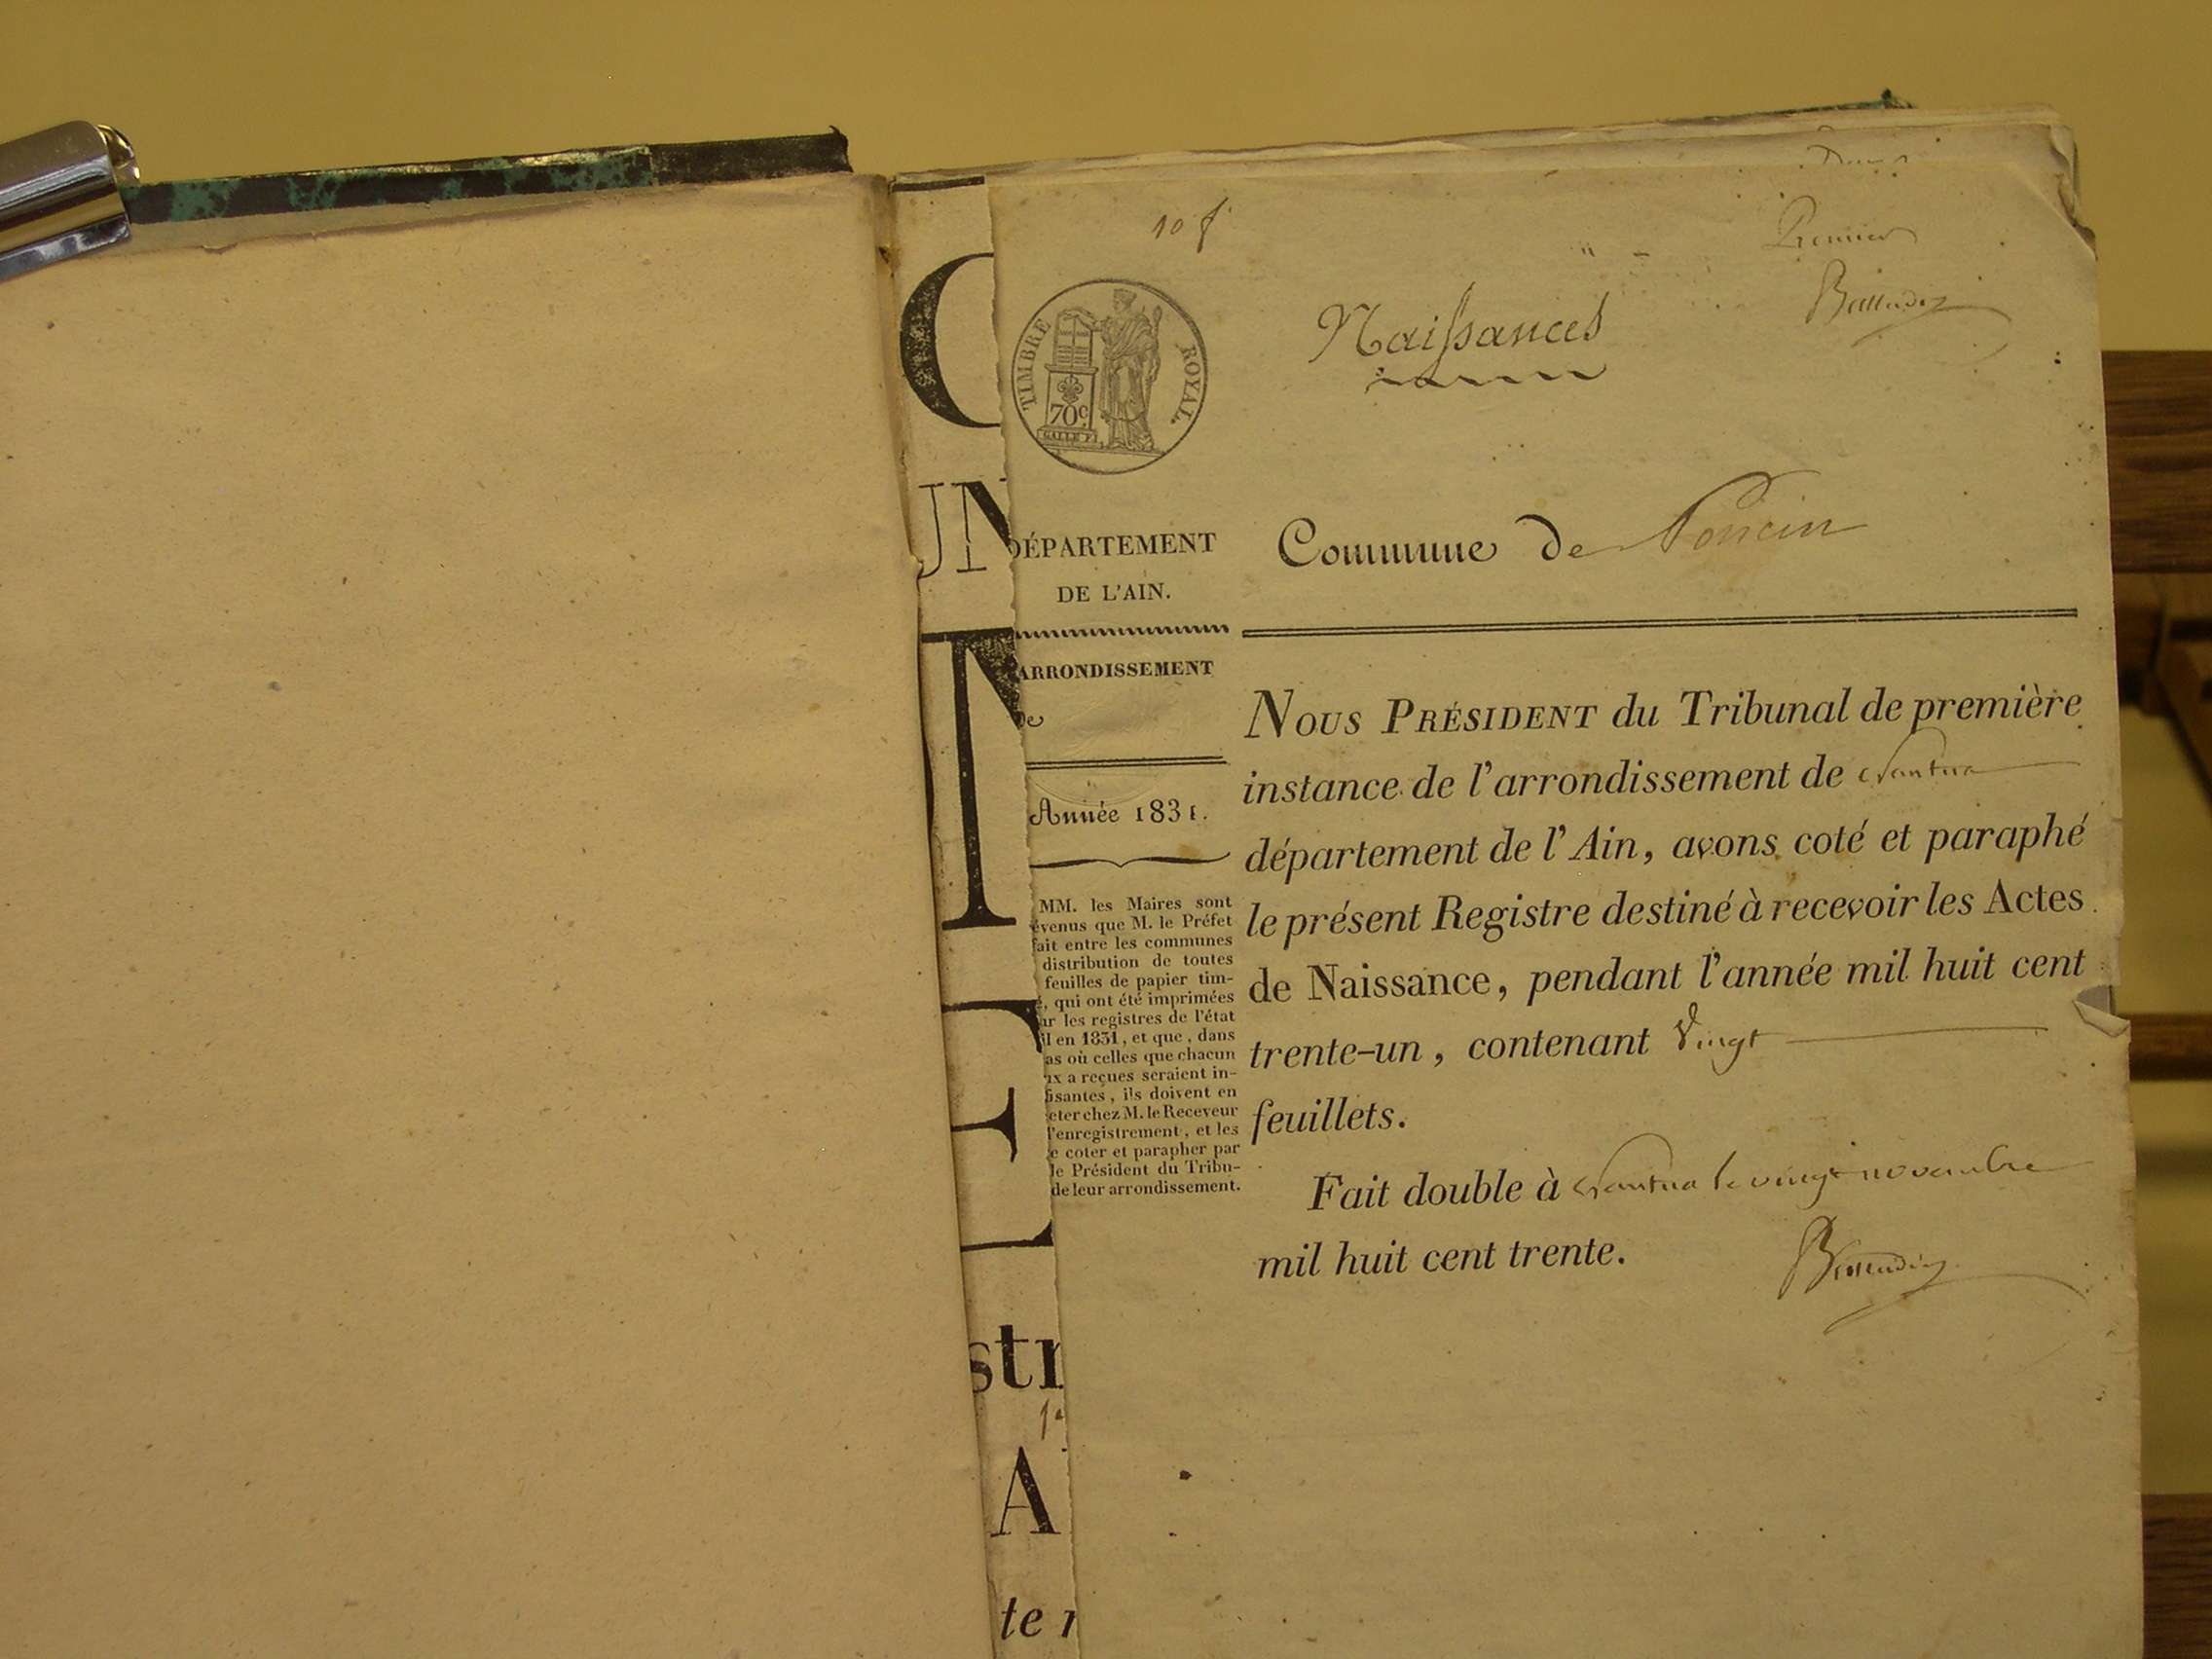 10 f
Premier
Naissances
TIMBRE ROYAL.
70c
GALLE F.
Commune de Poncin
DÉPARTEMENT
DE L'AIN.
ARRONDISSEMENT
de
Année 1831.
MM. les Maires sont
évenus que M. le Préfet
fait entre les communes
distribution de toutes
feuilles de papier tim-
é, qui ont été imprimées
ur les registres de l'état
il en 1831, et que, dans
as où celles que chacun
ux a reçues seraient in-
fisantes, ils doivent en
eter chez M. le Receveur
l'enregistrement, et les
e coter et parapher par
le Président du Tribu-
de leur arrondissement.
NOUS PRÉSIDENT du Tribunal de première
instance de l'arrondissement de Nantua
département de l'Ain, avons coté et paraphé
le présent Registre destiné à recevoir les Actes
de Naissance, pendant l'année mil huit cent
trente-un, contenant Vingt
feuillets.
Fait double à Nantua le vingt novembre
mil huit cent trente.
UN
str
A
te